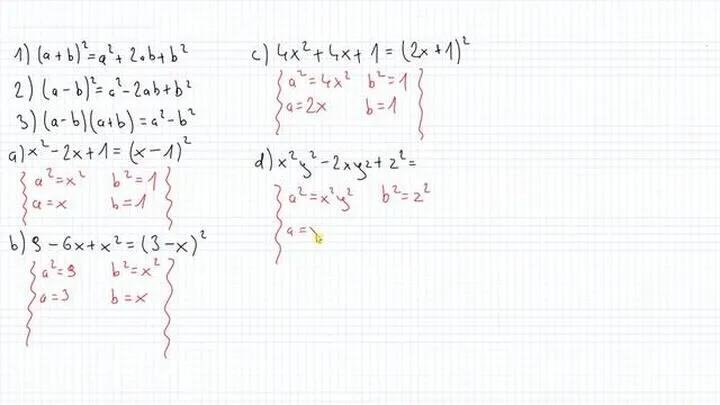 1) (a+b)²=a²+2ab+b²
2) (a-b)²=a²-2ab+b²
3) (a-b)(a+b)=a²-b²
a) x²-2x+1=(x-1)²
a²=x² b²=1
a=x b=1
b) 9-6x+x²=(3-x)²
a²=9 b²=x²
a=3 b=x
c) 4x²+4x+1=(2x+1)²
a²=4x² b²=1
a=2x b=1
d) x²y²-2xyz+z²=
a²=x²y² b²=z²
a=x